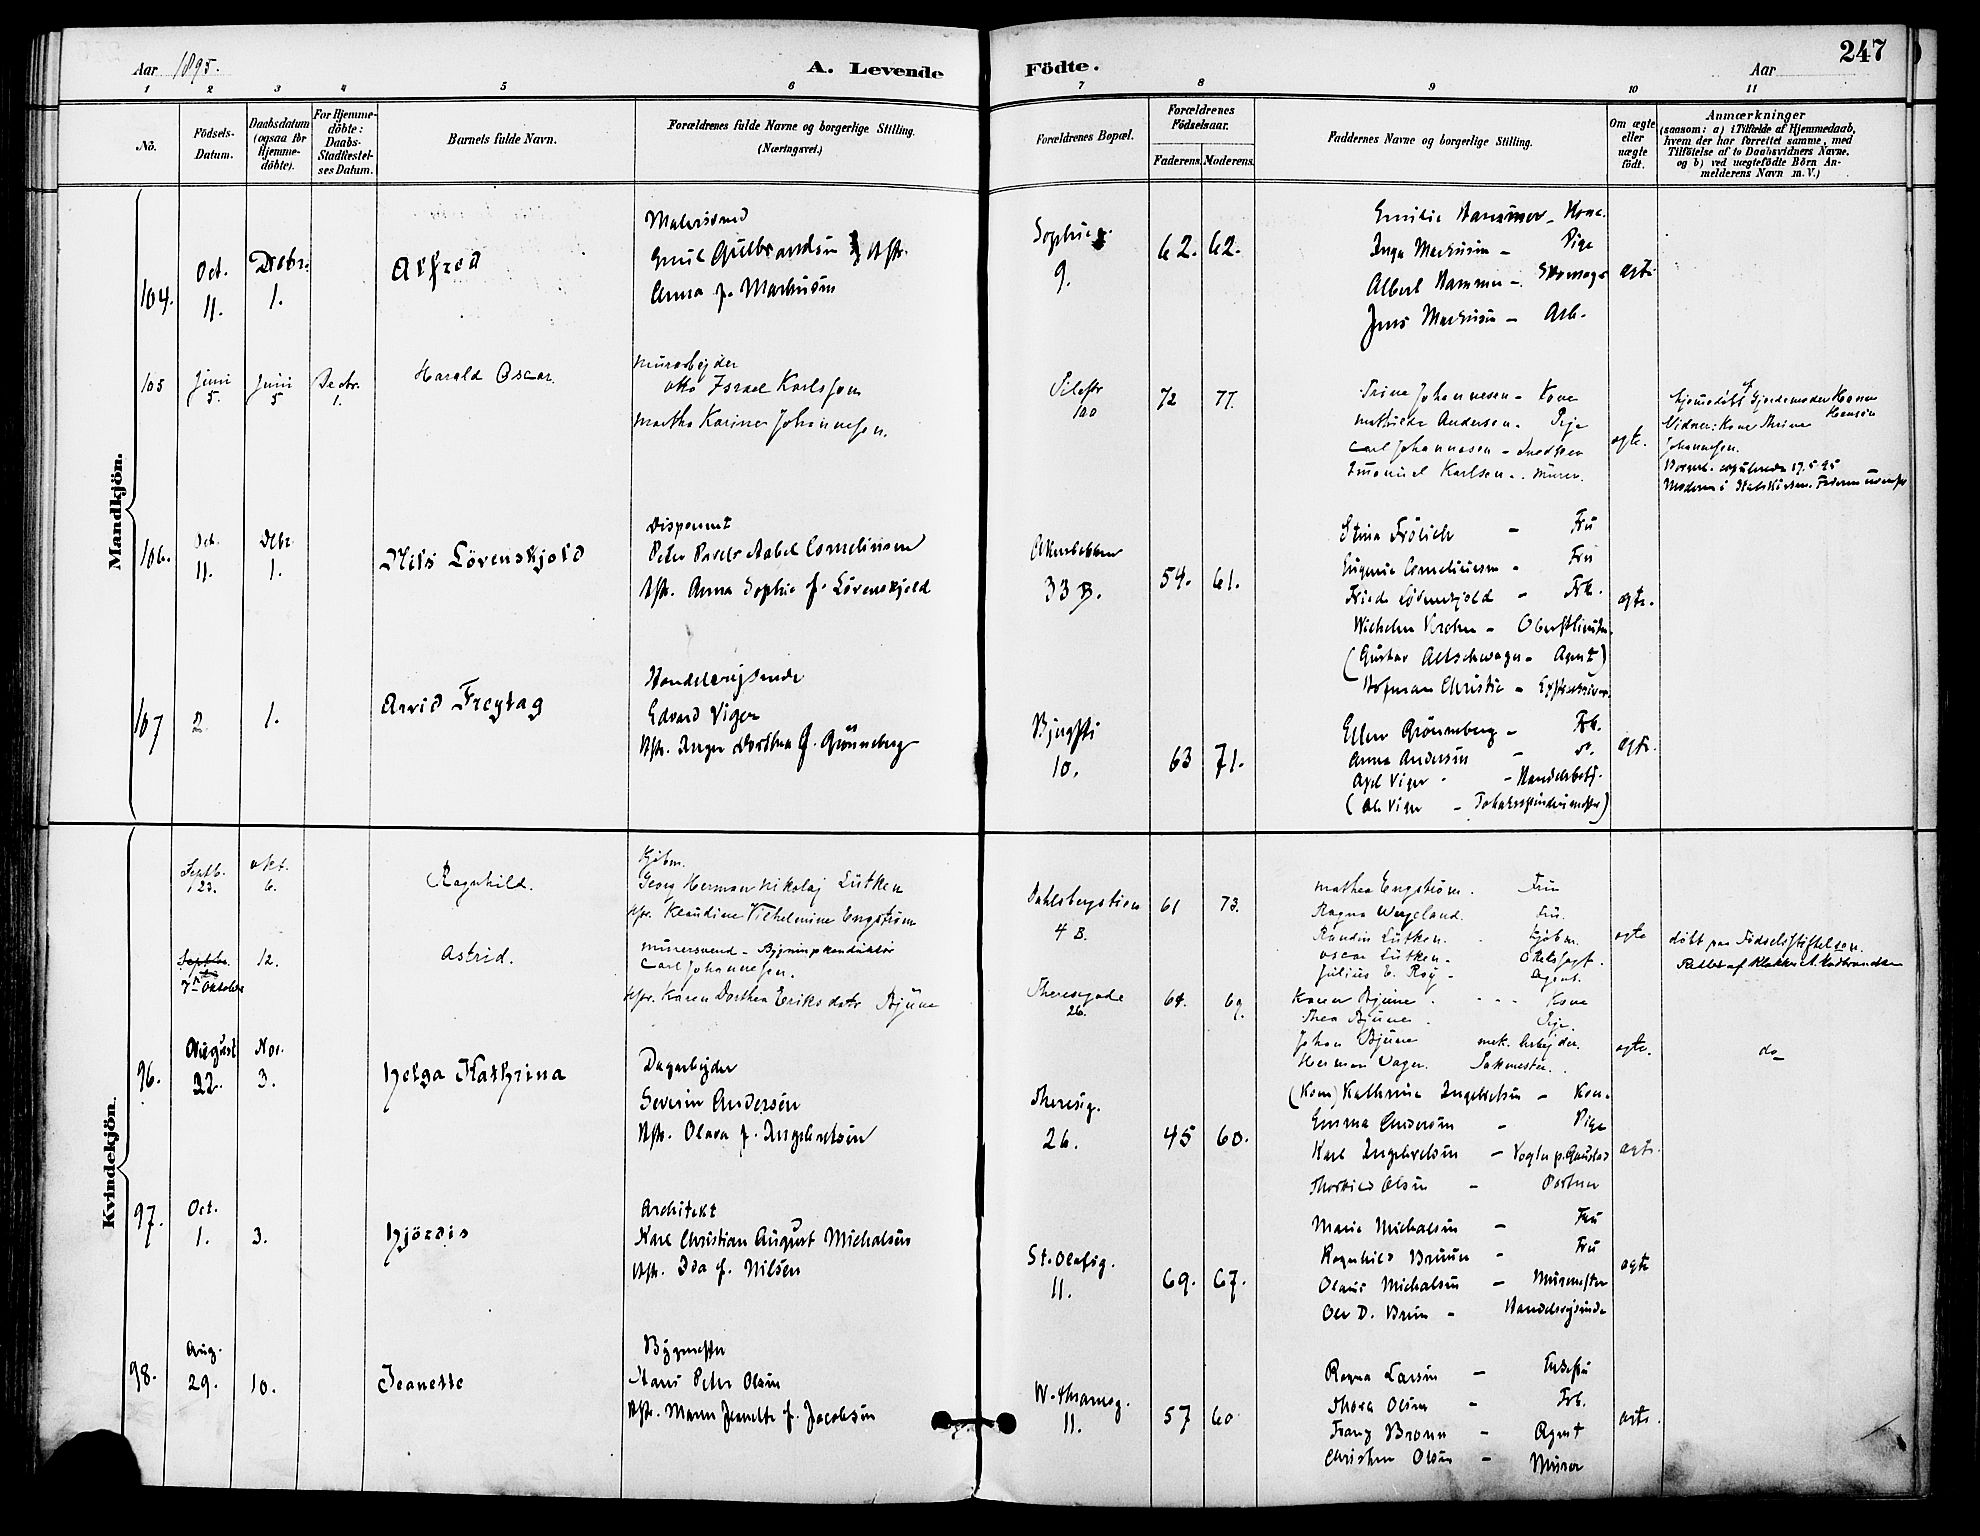 Aar 1895.
A. Levende Födte.
Aar
247
1 2 3 4 5 6 7 8 9 10 11
No.
Födsels-Datum.
Daabsdatum (ogsaa for Hjemme-döbte).
For Hjemme-döbte: Daabs-Stadfæstel-ses Datum.
Barnets fulde Navn.
Forældrenes fulde Navne og borgerlige Stilling. (Næringsvei.)
Forældrenes Bopæl.
Forældrenes Födselsaar.
Faderens. Moderens.
Faddernes Navne og borgerlige Stilling.
Om ægte eller uægte födt.
Anmærkninger
(saasom: a) i Tilfælde af Hjemmedaab,
hvem der har forrettet samme, med
Tilföielse af to Daabsvidners Navne.
og b) ved uægtefödte Börn An-
melderens Navn m. V.)
Mandkjön.
104. Oct. 11. Decbr. 1. Alfred
Malersvend
Emil Gulbrandsen
Anna f. Markusen
Sophieg. 9.
62. 62.
Emilie Hammer - Kone.
Inga Markusen - Pige
Albert Hammer -
Jens Markusen - Arb.
ægte
105 Juni 5. Juni 5 Decbr. 1. Harald Oscar.
Murarbejder
Otto Israel Karlsson
Martha Karine Johannesen.
Pilestr 100
72 77.
Trine Johannesen - Kone
Mathilde Andersen - Pige
Carl Johannesen -
Emanuel Karlsen - Murer.
ægte.
Hjemmedöbt af Gjordemoder Hanna Hansen
Vidner: Kone Thrine
Johannesen.
106. Oct. 11. Decbr 1. Nils Lövenskjold
Disponent
Peter Pavels Aabel Corneliussen
Hstr. Anna Sophie f. Lövenskjold
Akersbakken 33 B.
54. 61.
Stina Frölich - Fru
Eugenie Corneliussen - Fru
Lövenskjold - Frk.
Wilhelm - Oberstlieut.
(Gustav - Agent)
Hofman Christie -
ægte.
107 2 1. Arvid Freytag
Handelsrejsende
Edvard Viger
Hstr. Inger Dorthea f. Grönneberg
10.
63 71.
Ellen Grönneberg - Frk.
Anna Andersen -
Axel Viger - Handelsbetj.
(Ole Viger - )
ægte.
Kvindekjön.
Septb. 23. Okt. 6. Ragnhild.
Kjöbm.
Georg Herman Nikolaj Lütken
Hstr. Klaudine Vilhelmine Engström
Dahlsbergstien 4 B.
61 73.
Mathea Engström. Fru
Ragna Wergeland. Fru.
Randin Lütken. Kjöbm.
Oscar Lütken -
Julius E. Roy - Agent.
ægte
döbt paa Födselsstiftelsen.
7de Oktober 12. Astrid.
Murersvend - Bygningskonduktör
Carl Johannesen.
Hstr. Karen Dorthea Eriksdatr Bjune
Theresegade 26.
64. 69.
Karen Bjune. Kone
Thea Bjune. Pige.
Johan Bjune mek. Arbejder.
Herman Vager.
ægte.
do
96. August 22. Nov. 3. Helga Kathrina
Dagarbejder
Severin Andersen
Hstr. Olava f. Ingebretsen
Theresg. 26.
45 60.
(Kone) Kathrine Ingebretsen - Kone
Emma Andersen - Pige
Karl Ingebretsen - Vogter p. Gaustad
Olsen - Portner
ægte.
97. Oct. 1. 3. Hjördis
Architekt
Karl Christian August Michalsen
Hstr. Ida f. Nilsen
St. Olafsg. 11.
69. 67.
Marie Michalsen - Fru
Ragnhild Bruun - Fru
Olaus Michalsen - Murmester
Ole D. Bruun - Handelsrejsende
ægte
98. Aug. 29. 10. Jeanette
Bygmester
Hans Peter Olsen
Hstr. Maren Jeanette f. Jacobsen
W. Thranesg. 11.
57 60
Ragna Larsen -
Thora Olsen - Frk.
Franz Bruun - Agent
Christian Olsen - Murer
ægte.